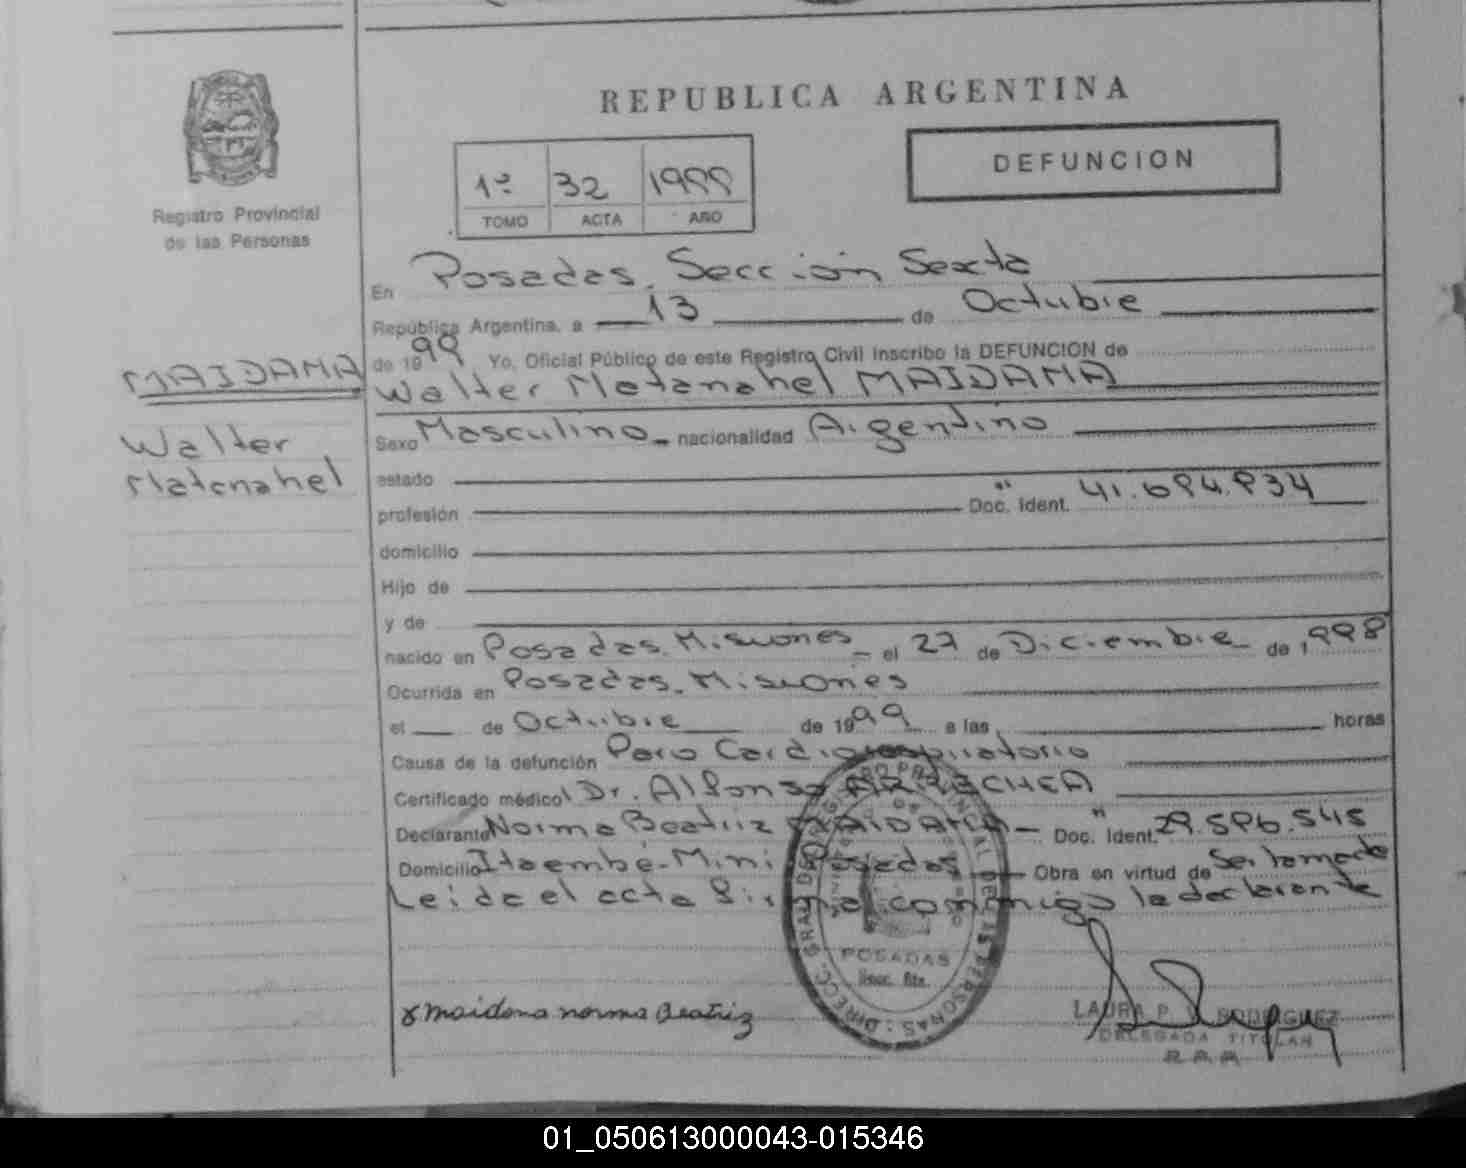 REPUBLICA ARGENTINA
DEFUNCION
1º 32 1999
TOMO ACTA AÑO
Registro Provincial
de las Personas
En Posadas. Sección Sexta
República Argentina, a 13 de Octubre
de 1999 Yo, Oficial Público de este Registro Civil inscribo la DEFUNCION de
MAIDANA
Walter Natanahel MAIDANA
Walter
Natanahel
Sexo Masculino nacionalidad Argentino
estado
profesión Doc. Ident. 41.694.934
domicilio
Hijo de
y de
nacido en Posadas. Misiones el 27 de Diciembre de 1998
Ocurrida en Posadas. Misiones
el de Octubre de 1999 a las horas
Causa de la defunción Paro Cardiorespiratorio
Certificado médico Dr. Alfonso ARRECHEA
Declarante Norma Beatriz MAIDANA Doc. Ident. 29.596.545
Domicilio Itaembé-Mini Posadas Obra en virtud de Ser la madre
Leida el acta firma conmigo la declarante
POSADAS
Secc. 6ta.
x maidana norma Beatriz
LAURA P. V. RODRIGUEZ
DELEGADA TITULAR
01_050613000043-015346